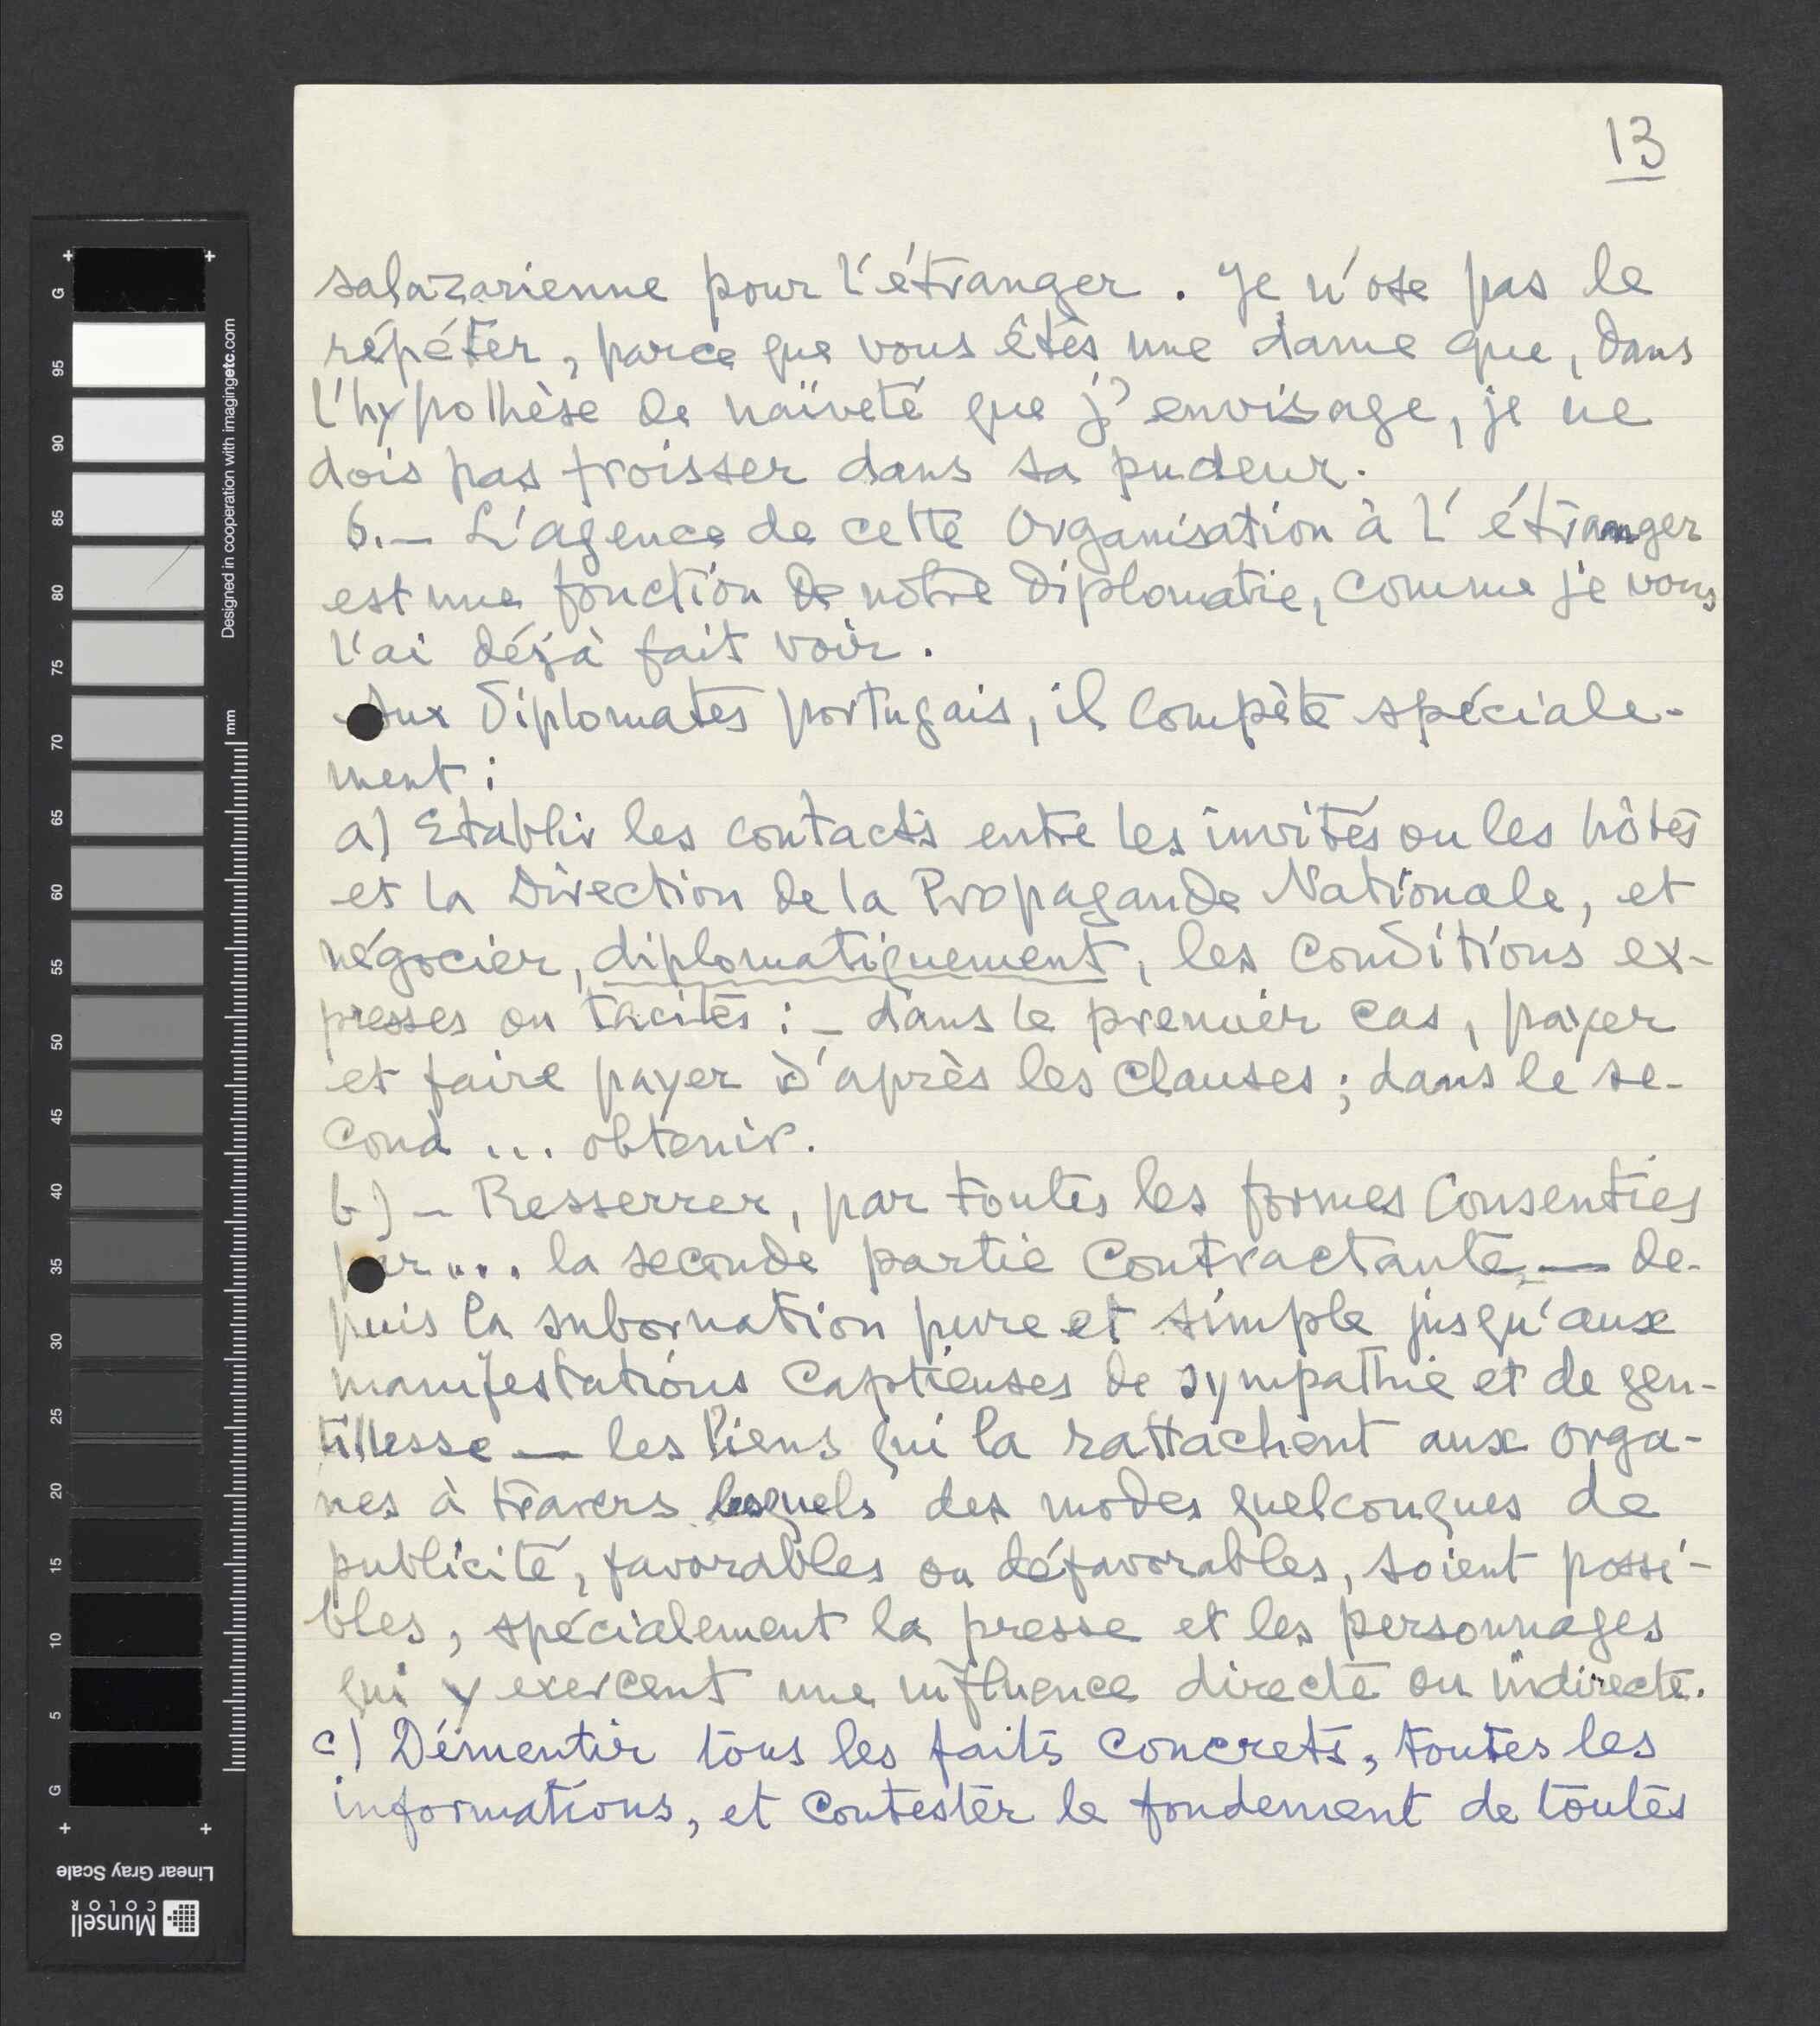 13
salazarienne pour l'étranger. Je n'ose pas le
répéter, parce que vous êtes une dame que, dans
l'hypothèse de naïveté que j'envisage, je ne
dois pas froisser dans sa pudeur.
6.— L'agence de cette Organisation à l'étranger
est une fonction de notre diplomatie, comme je vous
l'ai déjà fait voir.
Aux diplomates portugais, il compète spéciale-
ment :
a) Etablir les contacts entre les invités ou les hôtes
et la Direction de la Propagande Nationale, et
négocier, diplomatiquement, les conditions ex-
presses ou tacites : — dans le premier cas, payer
et faire payer d'après les clauses ; dans le se-
cond ... obtenir.
b) — Resserrer, par toutes les formes consenties
par ... la seconde partie contractante — de-
puis la subornation pure et simple jusqu'aux
manifestations captieuses de sympathie et de gen-
tillesse — les liens qui la rattachent aux orga-
nes à travers lesquels des modes quelconques de
publicité, favorables ou défavorables, soient possi-
bles, spécialement la presse et les personnages
qui y exercent une influence directe ou indirecte.
c) Démentir tous les faits concrets, toutes les
informations, et contester le fondement de toutes
G
95
90
85
80
75
70
65
60
55
50
45
40
35
30
25
20
15
10
5
G
Designed in cooperation with imagingetc.com
mm
Linear Gray Scale
Munsell
COLOR